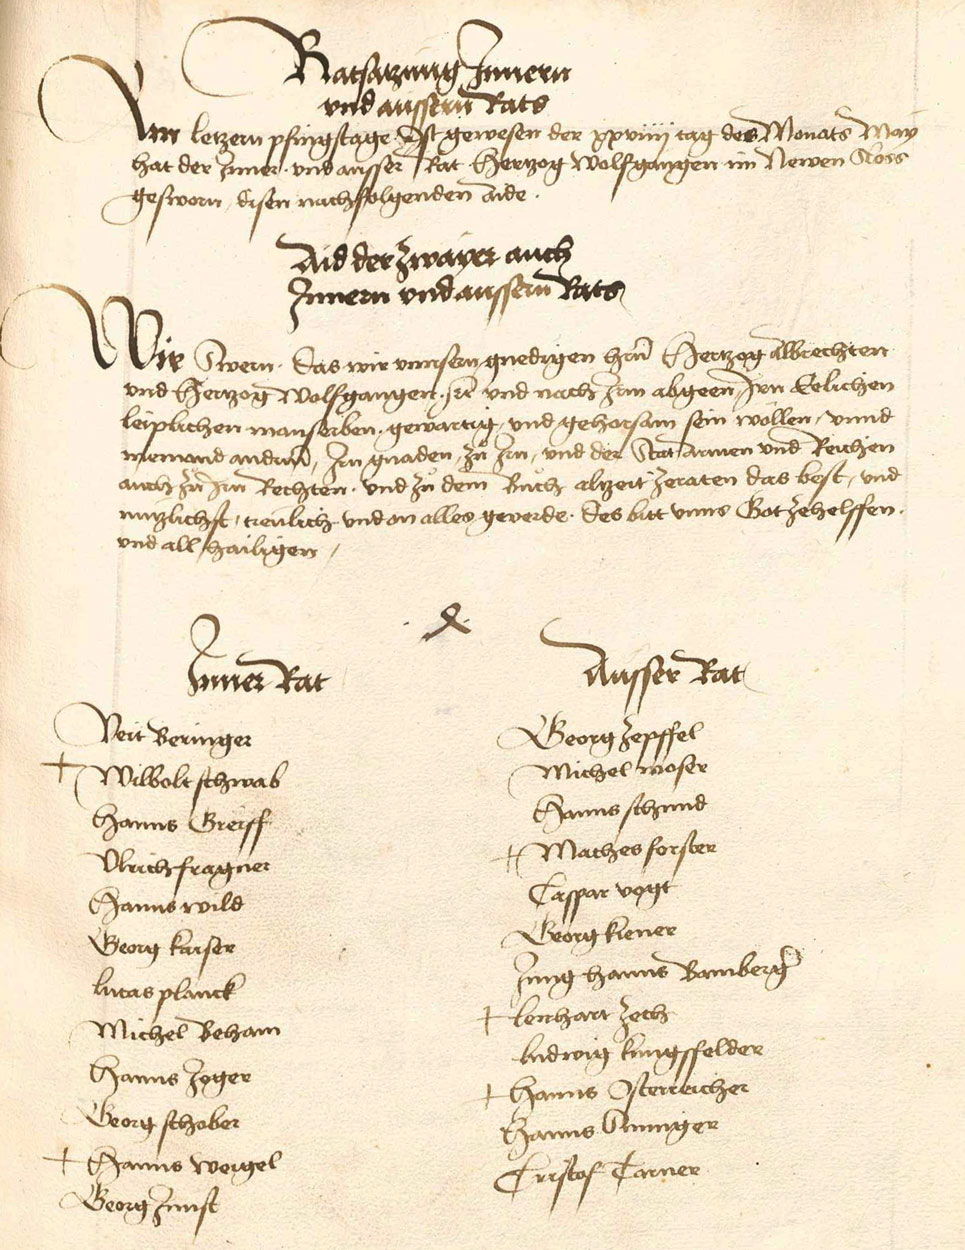 Ratsatzung Innern
vnd aussern Rats
Am letzern pfingstage Ist gewesen der xxviiij tag des Monats May
hat der Inner vnd ausser Rat Hertzog Wolfgangen im Newen Sloss
gesworn, disen nachfolgenden Aide.
Aid der Zwayer auch
Innern vnd aussern Rats
Wir Swern. Das wir vnnsern gnedigen hern Hertzog Albrechten
vnd Hertzog Wolfgangen. vnd nach Irm abgeen, Irn Eelichen
leiplichen manserben, gewartig, vnd gehorsam sein wollen, vnnd
niemand andrm, Irn gnaden, zu Irn, vnd der Stat armen vnd Reichen
auch zu Irn Rechten. vnd zu dem Buch alzeit zeraten das best, vnd
nutzlichst, treulich vnd on alles geverde. Des bitt vnns Got zehelffen.
vnd all hailigen /
Inner Rat
Ausser Rat
Veit Beringer
+ Wilbolt schwab
Hanns Greiff
Vlrich fragner
Hanns wild
Georg kaiser
lucas planck
Michel Beham
Hanns Zeger
Georg schober
+ Hanns weigel
Georg Zunst
Georg Zepffel
Michel moser
Hanns schmid
+ Mathes forster
Caspar vogt
Georg kiener
Jung hanns Bamberger
+ lenhart Zech
ludwig kungsfelder
+ Hanns Osterreicher
Hanns
Cristof Carner